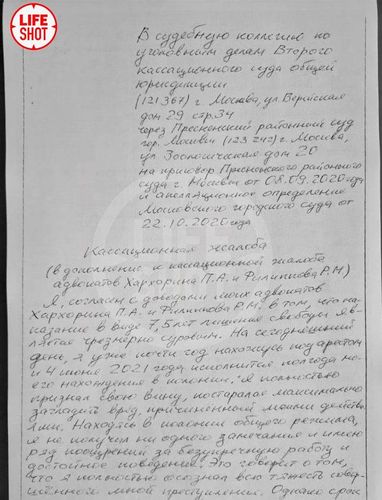 LIFE
SHOT
В судебную коллегию по
уголовным делам Второго
кассационного суда общей
юрисдикции
(121357) г. Москва, ул Верейская
дом 29 стр. 34
через Пресненский районный суд
гор. Москвы (123242) г. Москва,
ул Зоологическая дом 20
на приговор Пресненского районного
суда г. Москвы от 08.09.2020 года
и апелляционное определение
Московского городского суда от
22.10.2020 года
Кассационная жалоба
(в дополнение к кассационной жалобе
адвокатов Хархорина П.А. и Филиппова Р.Н)
Я, согласен с доводами моих адвокатов
Хархорина П.А. и Филиппова Р.Н, в том, что на-
казание в виде 7,5 лет лишения свободы яв-
ляется чрезмерно суровым. На сегодняшний
день, я уже почти год нахожусь под арестом
и 4 июне 2021 года исполнится полгода мо-
его нахождения в колонии. Я полностью
признал свою вину, постарался максимально
загладить вред, причиненный моими действ-
иями. Находясь в колонии общего режима,
я не получил ни одного замечания и имею
ряд поощрений за безупречную работу и
достойное поведение. Это говорит о том,
что я полностью осознал всю тяжесть совер-
шенного мной преступления. Однако срок